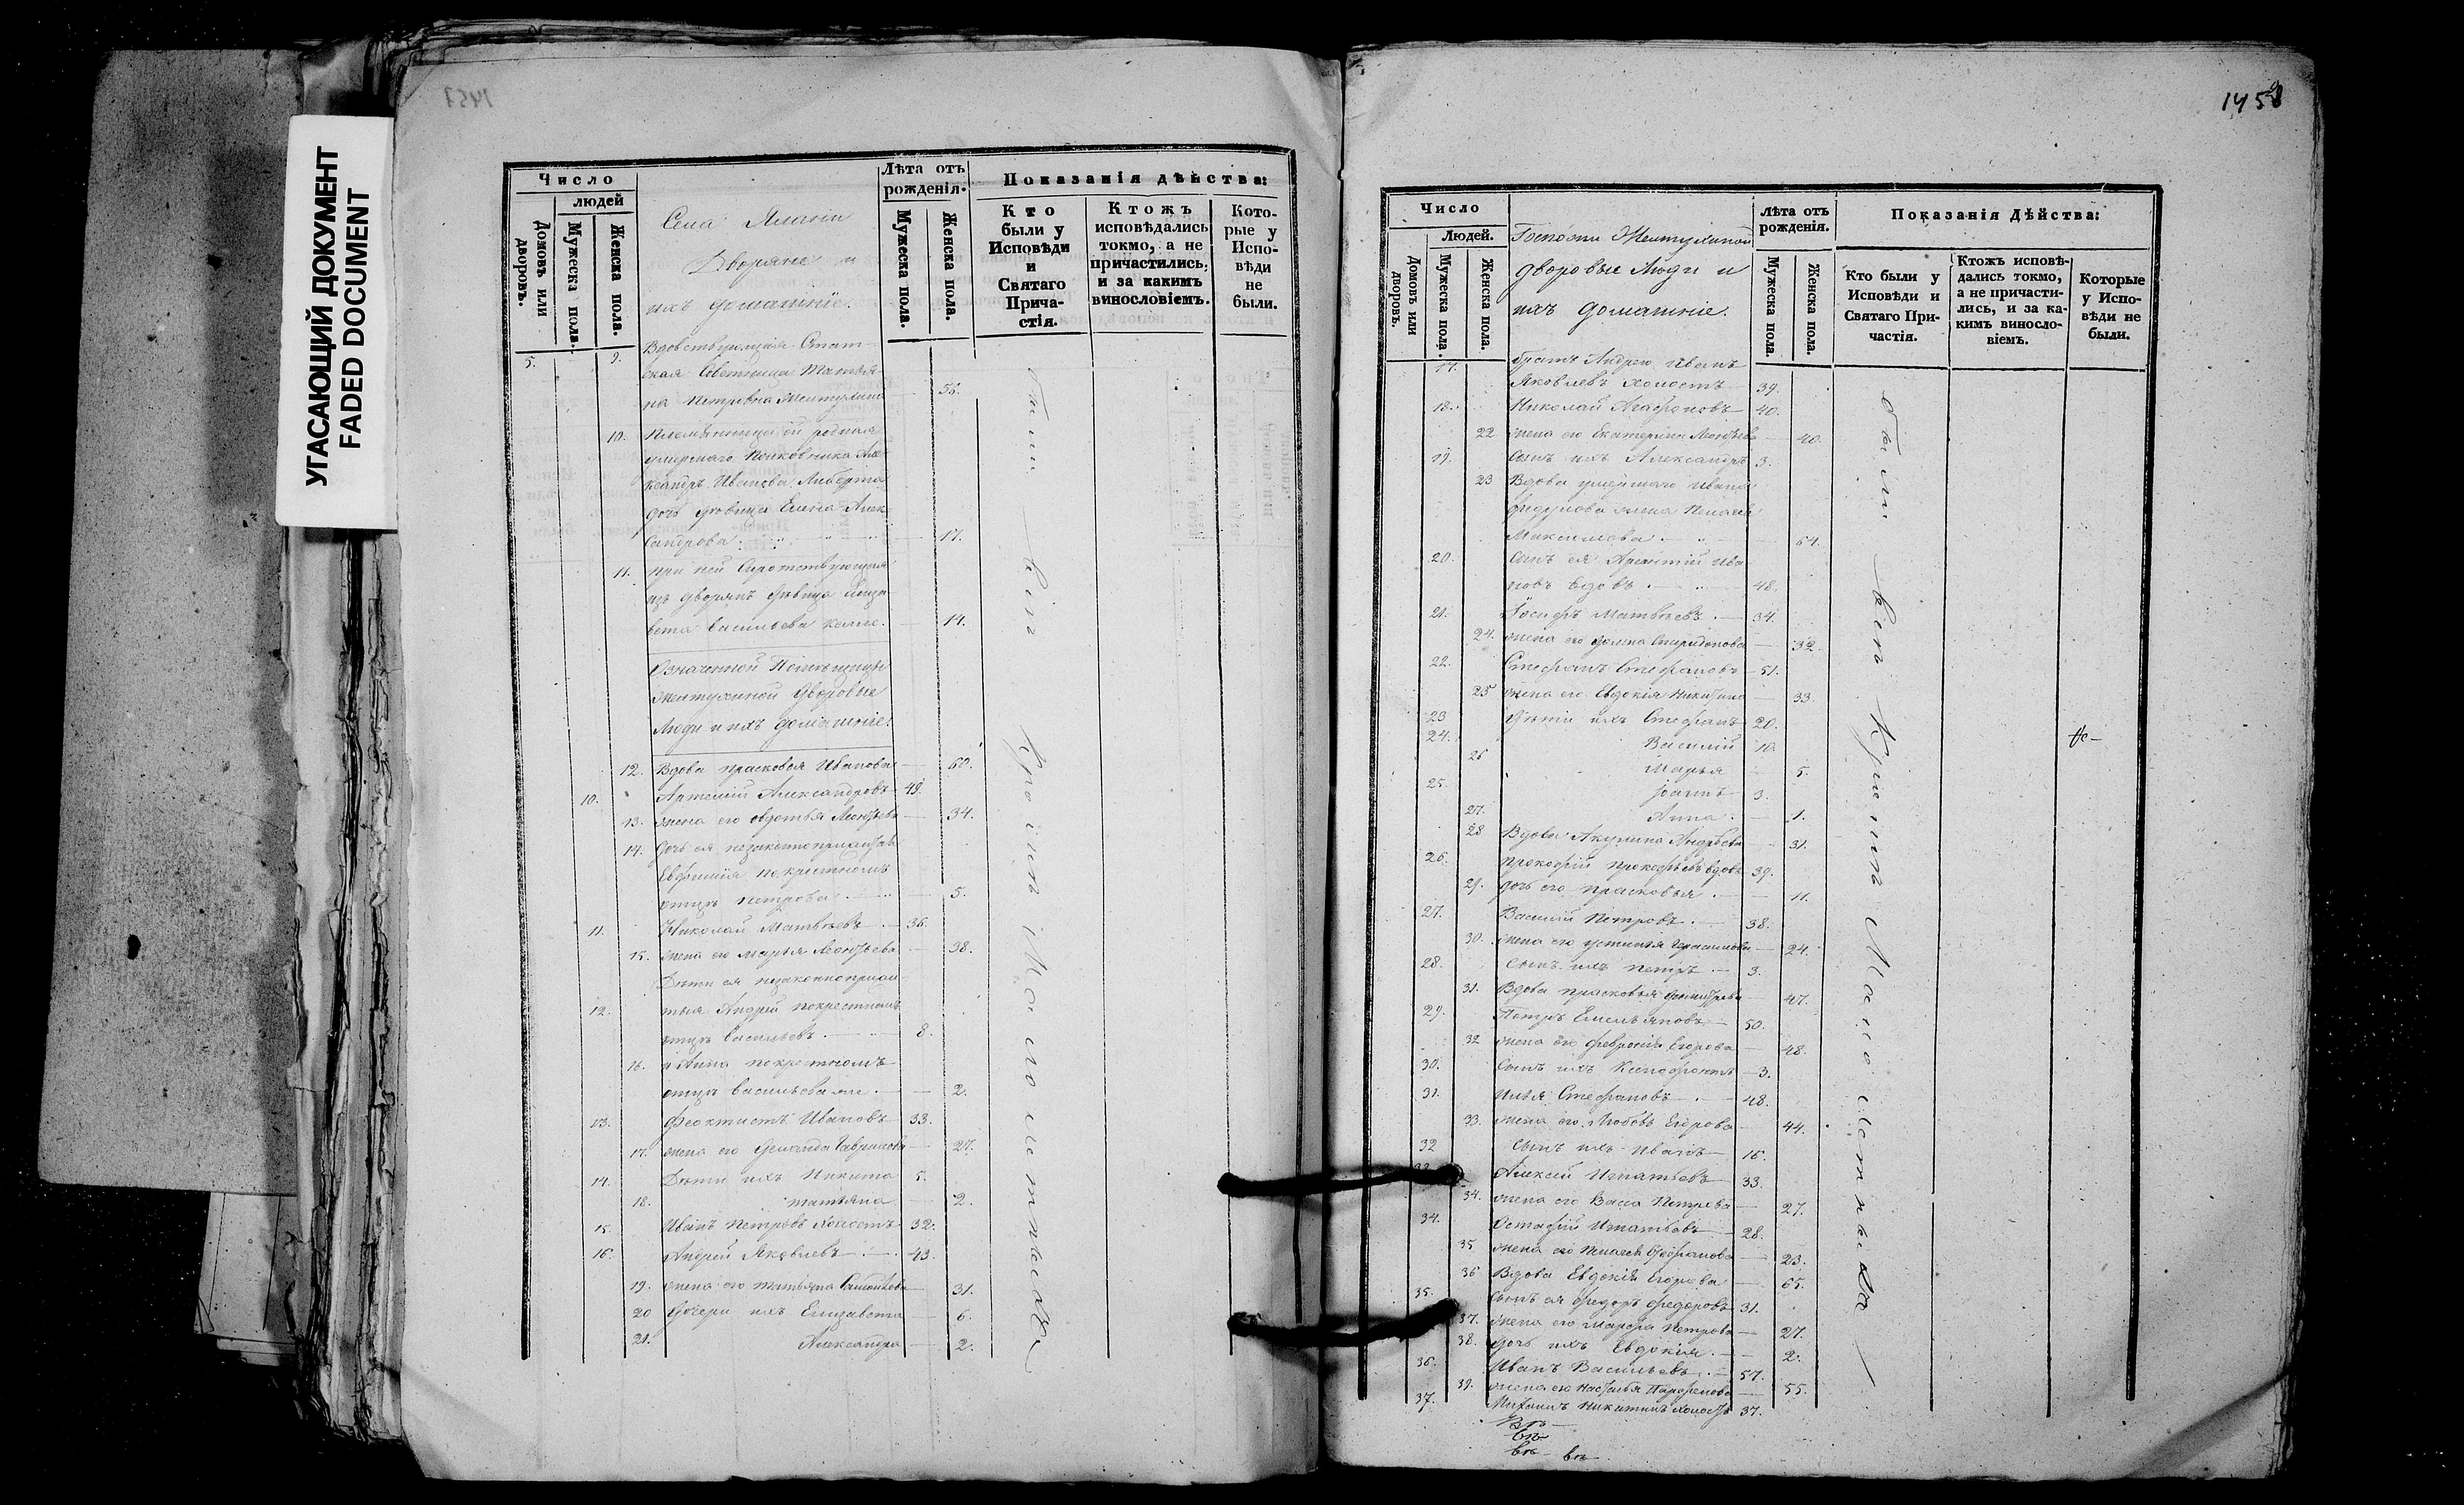 УГАСАЮЩИЙ ДОКУМЕНТ
FADED DOCUMENT
1457
Число
людей
Домовъ или дворовъ.
Мужеска пола.
Женска пола.
Села
Дворяне и
ихъ домашніе.
Лѣта отъ рожденія.
Мужеска пола.
Женска пола.
Показанія дѣйства:
Кто были у Исповѣди и Святаго Причастія.
Ктожъ исповѣдались токмо, а не причастились; и за какимъ винословіемъ.
Которые у Исповѣди не были.
5. 9. Вдовствующая Стат-
ская Совѣтница Татья-
на Петровна Желтухина 56.
10. Племянница ей родная
умершаго Полковника Але-
ксандра Иванова
дочь дѣвица Елена Алек-
сандрова 17.
11. При ней Сиротствующая
изъ дворянъ дѣвица Елиза-
вета Васильева 14.
Означенной Помѣщицы
Желтухиной Дворовые
Люди и ихъ домашніе:
12. Вдова Прасковья Иванова 60.
10. Артемій Александровъ 49.
13. жена его Авдотья Леонтьева 34.
14. Дочь ея незаконноприжитая
Евфимія по крестному
отцу Петрова 5.
11. Николай Матвѣевъ 36.
15. жена его Марья Леонтьева 38.
Дѣти ея незаконноприжи
12. тыя Андрей по крестному
отцу Васильевъ 8.
16. и Анна по крестному
отцу Васильева же 2.
13. Феоктистъ Ивановъ 33.
17. жена его Гаврилова 27.
14. Дѣти ихъ Никита 5.
18. Татьяна 2.
15. Иванъ Петровъ холостъ 32.
16. Андрей Яковлевъ 43.
19. жена его Татьяна 31.
20 Дочери ихъ Елизавета 6.
21. Александра 2.
Были вси кроме Малолетныхъ
1458
Число
Людей.
Домовъ или дворовъ.
Мужеска пола.
Женска пола.
Госпожи Желтухиной
дворовые Люди и
ихъ домашніе.
Лѣта отъ рожденія.
Мужеска пола.
Женска пола.
Показанія Дѣйства:
Кто были у Исповѣди и Святаго Причастія.
Ктожъ исповѣдались токмо, а не причастились, и за какимъ винословіемъ.
Которые у Исповѣди не были.
17. Братъ Андрея Иванъ
Яковлевъ холостъ 39.
18. Николай Агафоновъ 40.
22 жена его Екатерина Леонтьева 40.
19. Сынъ ихъ Александръ 3.
23 Вдова умершаго Ивана
жена Пелагея
Максимова 64.
20. Сынъ ея Ива
новъ вдовъ 48.
21. Іосифъ Матвѣевъ 34.
24. жена его Спиридонова 32.
22. Стефанъ Стефановъ 51.
25 жена его Евдокія Никитина 33.
23 Дѣти ихъ Стефанъ 20.
24. Василій 10.
26 Марья 5.
25. Іоаннъ 3.
27. Анна 1.
28 Вдова Акулина Андрѣева 31.
26. Прокофій Прокофьевъ вдовъ 39.
29. дочь его Прасковья 11.
27. Василій Петровъ 38.
30. жена его Устинья Герасимова 24.
28. Сынъ ихъ Петръ 3.
31. Вдова Прасковья Дмитріева 47.
29. Петръ Емельяновъ 50.
32 жена его Февронія Егорова 48.
30. Сынъ ихъ Ксенофонтъ 3.
31. Илья Стефановъ 48.
33. жена его Любовь Егорова 44.
32 Сынъ ихъ Иванъ 16.
33. Алексѣй Игнатьевъ 33.
34. жена его Васса Петрова 27.
34. Остафій Игнатьевъ 28.
35 жена его Пелагея 23.
36 Вдова Евдокія Егорова 65.
35. Сынъ ея Федоръ Федоровъ 31.
37. жена его Марфа Петрова 27.
38. Дочь ихъ Евдокія 2.
36. Иванъ Васильевъ 57.
39. жена его Настасья Парфенова 55.
37. Михаилъ Никитинъ холостъ 37.
Были вси Кроме Малолетныхъ